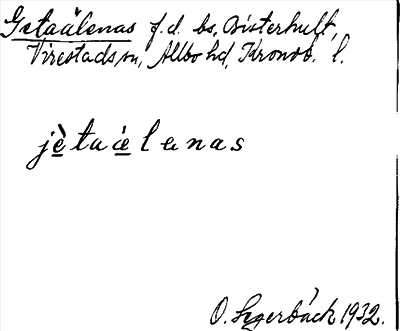 Getaälenas f.d. bs, Bisterhult,
Virestads sn, Allbo hd, Kronob. l.
jètaèlenas
O. Segerbäck 1932.